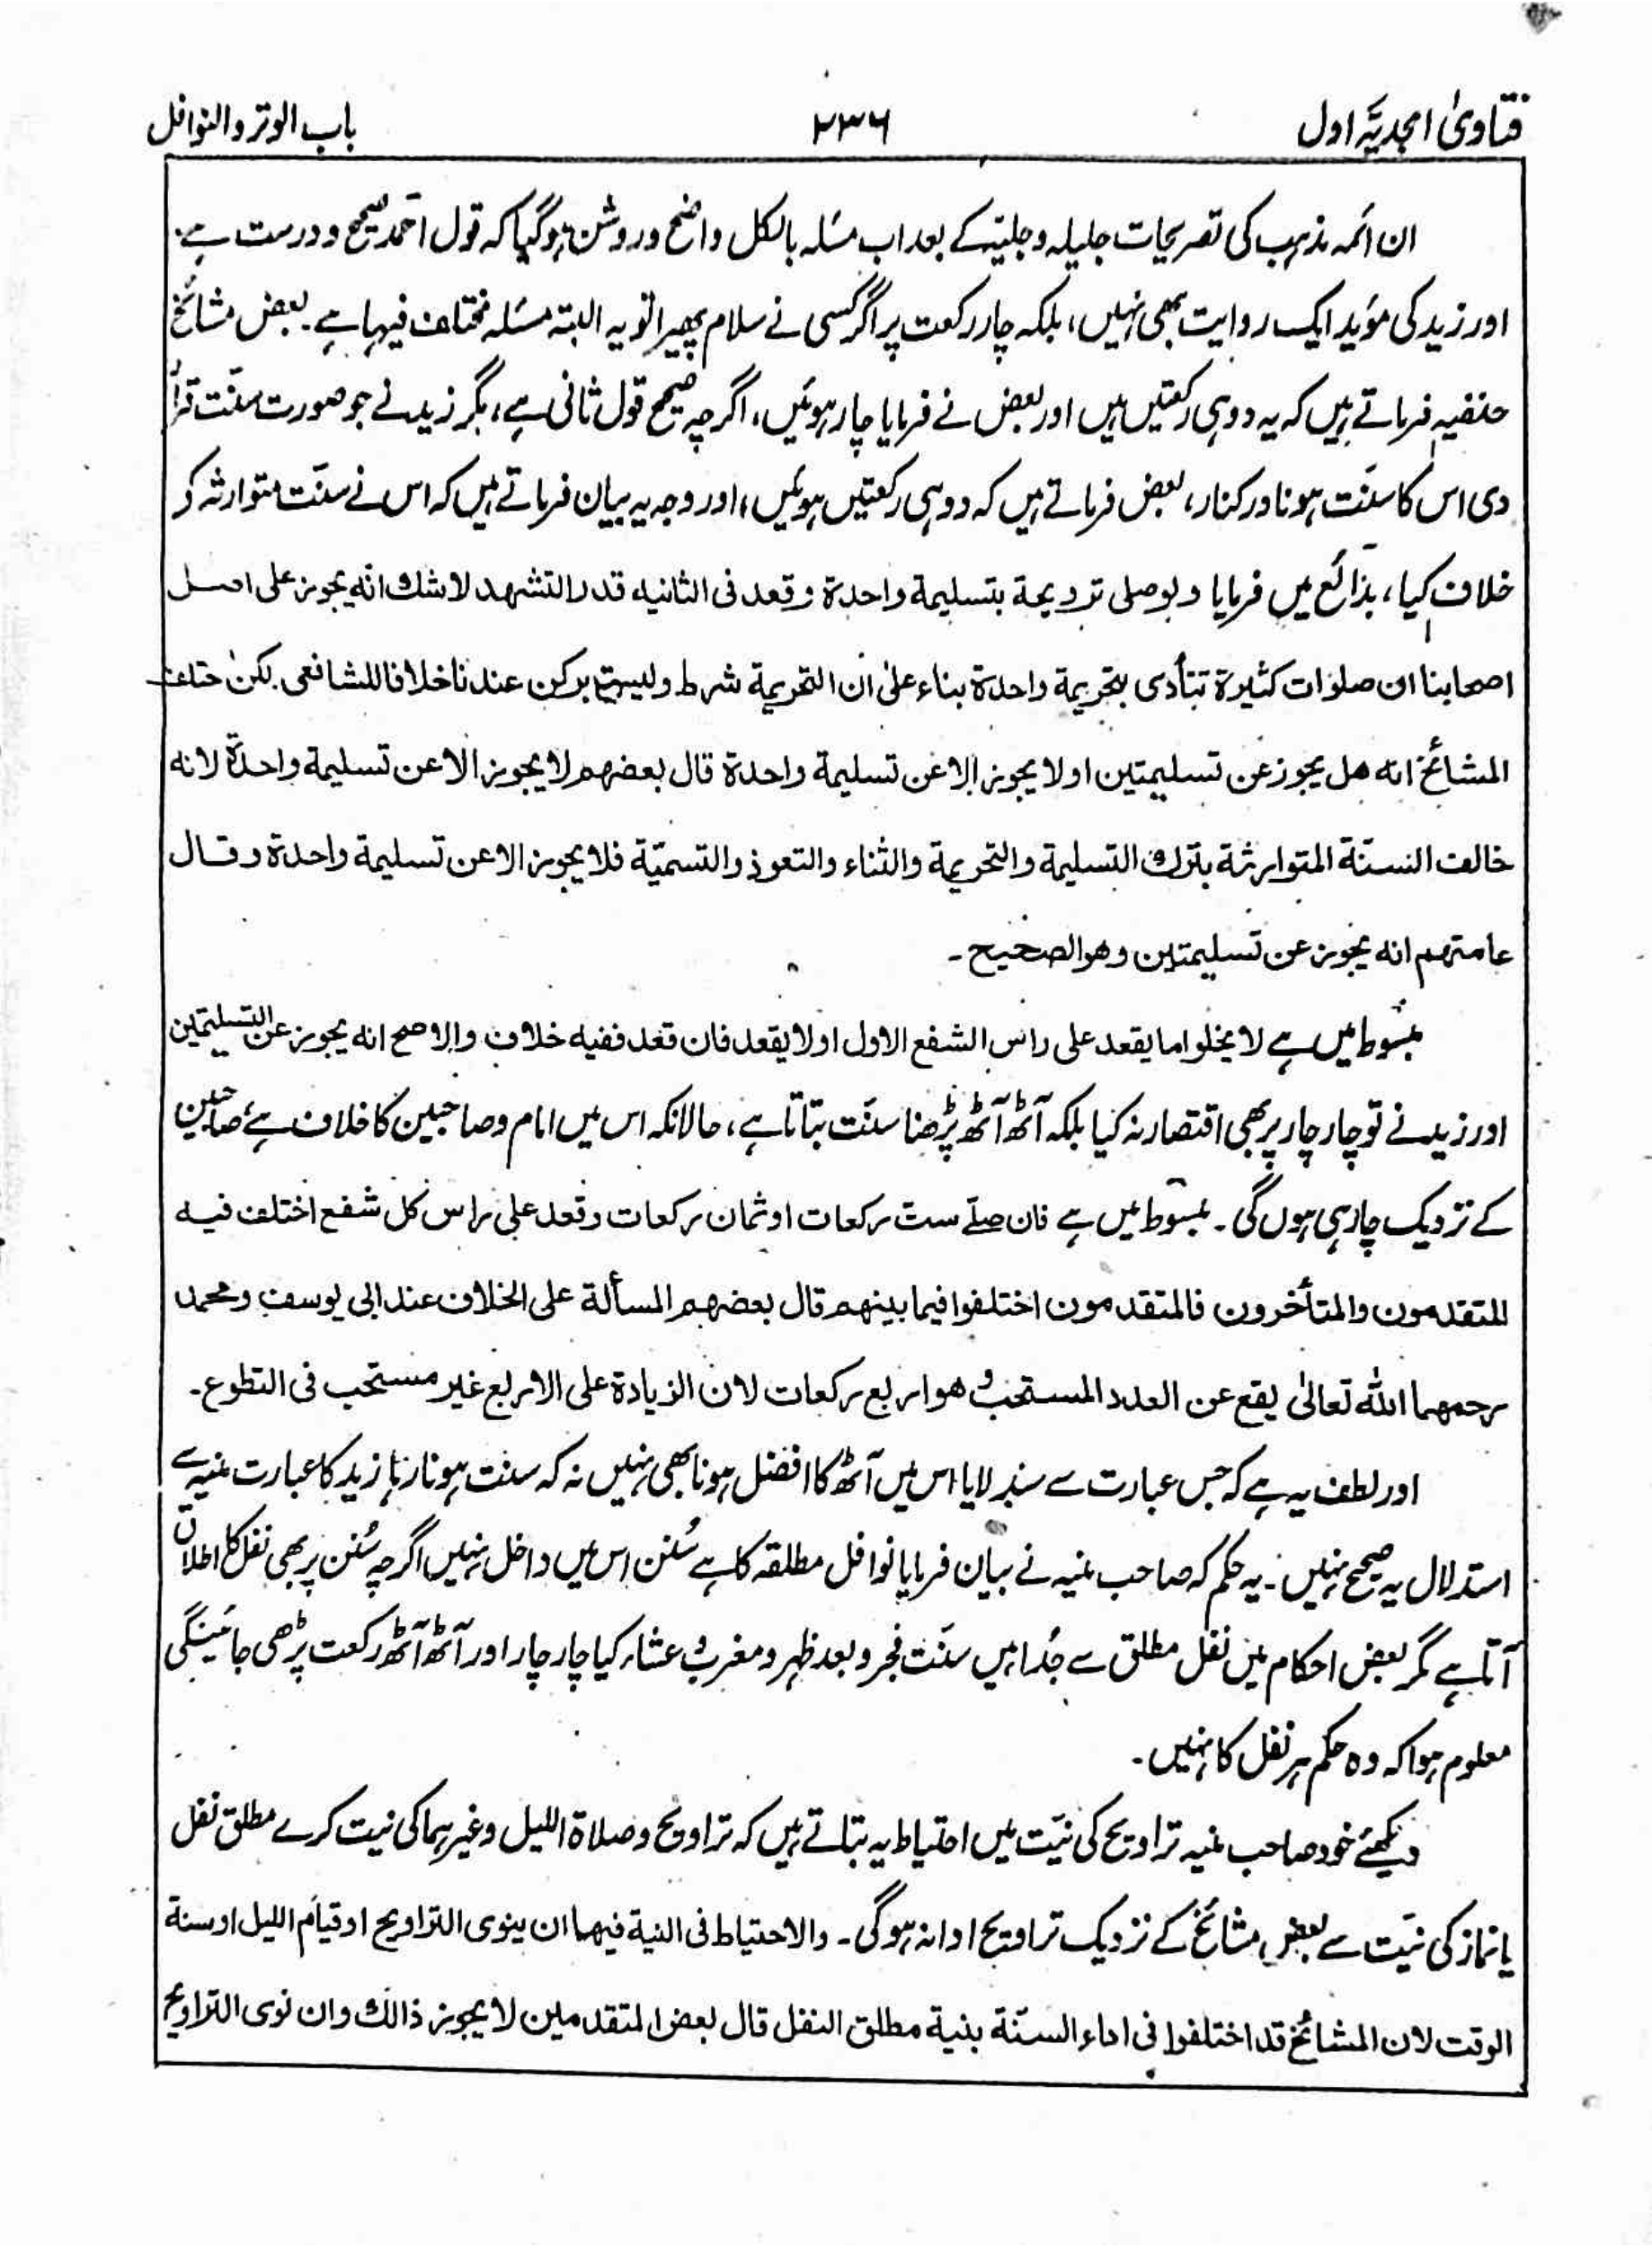 فتاویٰ امجدیہ اول
۲۳۶
باب الوتر والنوافل
ان ائمہ مذہب کی تصریحات جلیلہ و جلیہ کے بعد اب مسئلہ بالکل واضح و روشن ہو گیا کہ قول احمد صحیح و درست ہے۔
اور زید کی مؤید ایک روایت بھی نہیں، بلکہ چار رکعت پر اگر کسی نے سلام پھیرا تو یہ البتہ مسئلہ مختلف فیہا ہے۔ بعض مشائخ
حنفیہ فرماتے ہیں کہ یہ دو ہی رکعتیں ہیں اور بعض نے فرمایا چار ہوئیں، اگرچہ صحیح قول ثانی ہے، مگر زید نے جو صورت سنّت قرار
دی اس کا سنّت ہونا درکنار، بعض فرماتے ہیں کہ دو ہی رکعتیں ہوئیں، اور وجہ یہ بیان فرماتے ہیں کہ اس نے سنّت متوارثہ کے
خلاف کیا، بدائع میں فرمایا ولو صلی ترویحة بتسلیمة واحدة وقعد فی الثانیہ قدر التشھد لاشك انه یجوز علی اصل
اصحابنا ان صلوات کثیرة تتأدی بتحریمة واحدة بناء علیٰ ان التحریمة شرط ولیست برکن عندنا خلافا للشافعی۔ لکن اختلف
المشائخ انه هل یجوز عن تسلیمتین او لا یجوز الا عن تسلیمة واحدة قال بعضهم لا یجوز الا عن تسلیمة واحدة لانه
خالف السنّة المتوارثة بترك التسلیمة والتحریمة والثناء والتعوذ والتسمیّة فلا یجوز الا عن تسلیمة واحدة وقال
عامتهم انه یجوز عن تسلیمتین وهو الصحیح۔
مبسوط میں ہے لا یخلو اما یقعد علی راس الشفع الاول او لا یقعد فان قعد ففیه خلاف والاصح انه یجوز عن التسلیمتین
اور زید نے تو چار چار پر بھی اقتصار نہ کیا بلکہ آٹھ آٹھ پڑھنا سنّت بتاتا ہے، حالانکہ اس میں امام و صاحبین کا خلاف ہے، صاحبین
کے نزدیک چار ہی ہوں گی۔ مبسوط میں ہے فان صلّے ستّ رکعات او ثمان رکعات وقعد علی راس کل شفع اختلف فیه
المتقدمون والمتأخرون فالمتقدمون اختلفوا فیما بینهم قال بعضهم المسألة علی الخلاف عند ابی یوسف ومحمد
رحمهما اللہ تعالیٰ یقع عن العدد المستحب وهو اربع رکعات لان الزیادة علی الاربع غیر مستحب فی التطوع۔
اور لطف یہ ہے کہ جس عبارت سے سند لایا اس میں آٹھ کا افضل ہونا بھی نہیں نہ کہ سنت ہونا رہا زید کا عبارت منیہ سے
استدلال یہ صحیح نہیں۔ یہ حکم کہ صاحب منیہ نے بیان فرمایا نوافل مطلقہ کا ہے سُنن اس میں داخل نہیں اگرچہ سُنن پر بھی نفل کا اطلاق
آتا ہے مگر بعض احکام میں نفل مطلق سے جُدا ہیں سنّت فجر و بعد ظہر و مغرب و عشاء کیا چار چار اور آٹھ آٹھ رکعت پڑھی جائینگی
معلوم ہوا کہ وہ حکم ہر نفل کا نہیں۔
دیکھئے خود صاحب منیہ تراویح کی نیّت میں احتیاط یہ بتاتے ہیں کہ تراویح و صلاة اللیل وغیرہما کی نیت کرے مطلق نفل
یا نماز کی نیّت سے بعض مشائخ کے نزدیک تراویح ادا نہ ہوگی۔ والاحتیاط فی النیة فیها ان ینوی التراویح او قیام اللیل او سنة
الوقت لان المشائخ قد اختلفوا فی اداء السنّة بنیة مطلق النفل قال بعض المتقدمین لا یجوز ذالك وان نوی التراویح